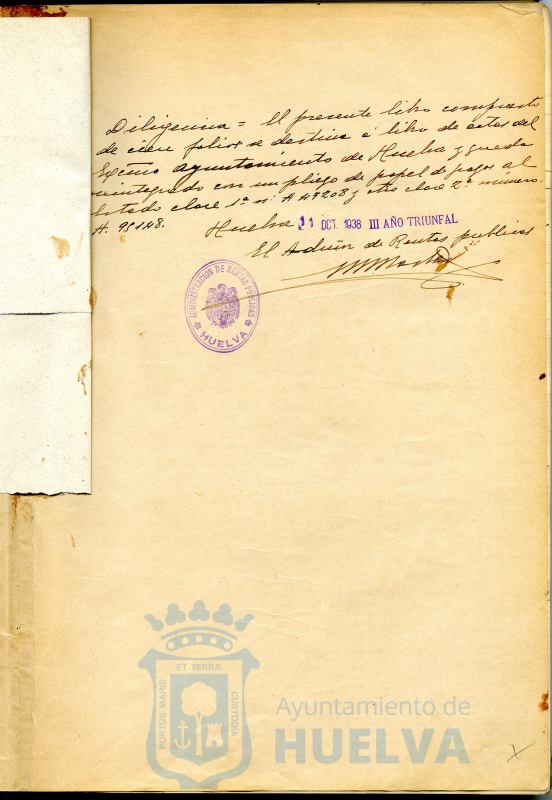 Diligencia = El presente libro compuesto
de cien folios se destina á libro de actas del
Excmo Ayuntamiento de Huelva y queda
reintegrado con un pliego de papel de pagos al
Estado clase 1ª nº A 47208 y otro clase 2ª número
A. 98148.
Huelva 11 OCT. 1938 III AÑO TRIUNFAL
El Admón de Rentas publicas
ADMINISTRACION DE RENTAS PUBLICAS
HUELVA
ET TERRÆ
PORTUS MARIS
CUSTODIA
Ayuntamiento de
HUELVA